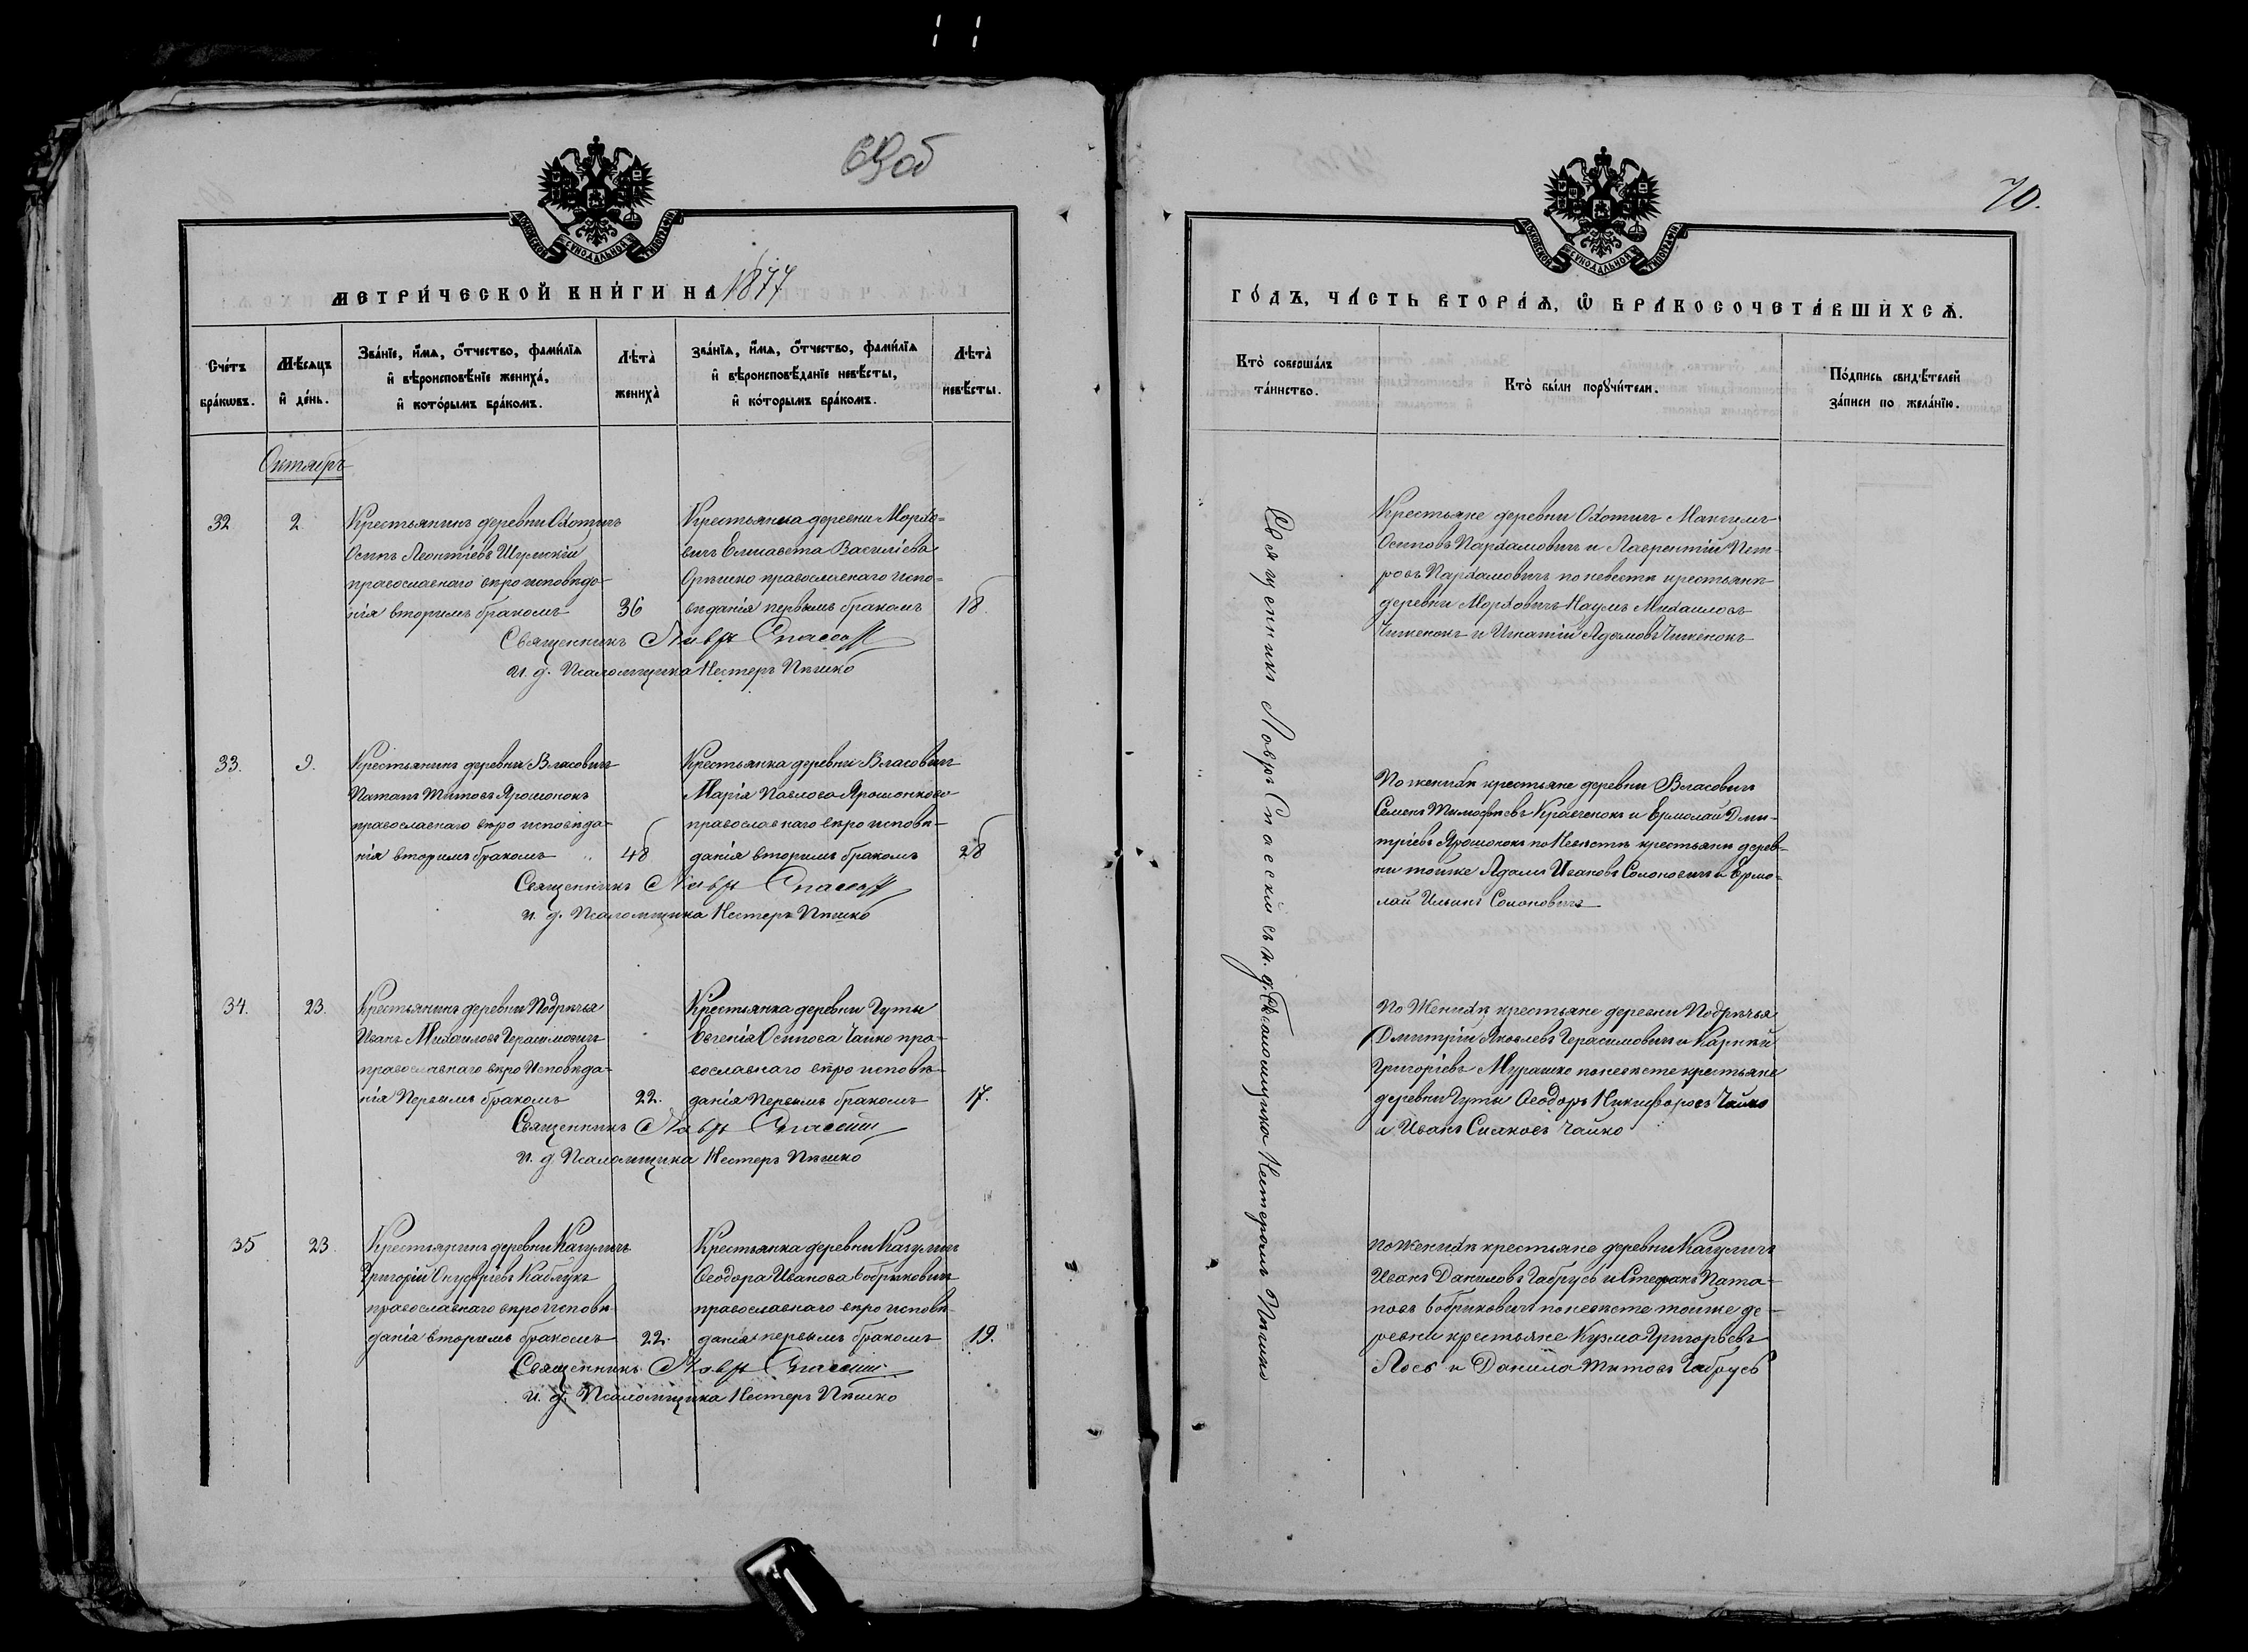 69об
МОСКОВСКОЙ СѴНОДАЛЬНОЙ ТИПОГРАФІИ
МЕТРИ́ЧЕСКОЙ КНИ́ГИ НА 1877
Сче́тъ бра́кѡвъ.
Мѣ́сяцъ и҆ де́нь.
Зва́нїе, и҆́мѧ, ѻ҆́тчество, фами́лїѧ и҆ вѣроисповѣ́нїе жениха́, и҆ кото́рымъ бра́комъ.
Лѣта̀ жениха̀
зва́нїѧ, и҆́мѧ, ѻ҆́тчество, фами́лїѧ и҆ вѣроисповѣ́данїе невѣ́сты, и҆ ко́торымъ бра́комъ.
Лѣта̀ невѣ́сты.
Октябрь
32
2
Крестьянинъ деревни Охотичъ
Осипъ Леонтіевъ Шумскій
православнаго вѣроисповѣда-
нія вторымъ бракомъ
36
Крестьянка деревни Морхо-
вичъ Елисавета Василіева
Орѣшко православнаго испо-
вѣданія первымъ бракомъ
18.
Священникъ Лавръ Спасскій
и. д. Псаломщика Нестеръ Пѣшко
33.
9.
Крестьянинъ деревни Власовичъ
Патапъ Титовъ Ярошонокъ
православнаго вѣроисповѣда-
нія вторымъ бракомъ
48
Крестьянка деревни Власовичъ
Марія Павлова Ярошонково
православнаго вѣроисповѣ-
данія вторымъ бракомъ
28
Священникъ Лавръ Спасскій
и. д. Псаломщика Нестеръ Пѣшко
34.
23.
Крестьянинъ деревни Подрѣчья
Иванъ Михаиловъ Герасимовичъ
православнаго вѣроисповѣда-
нія Первымъ бракомъ
22.
Крестьянка деревни Гуты
Евгенія Осипова Чайко пра-
вославнаго вѣроисповѣ-
данія Первымъ бракомъ
17.
Священникъ Лавръ Спасскій
и. д. Псаломщика Нестеръ Пѣшко
35
23
Крестьянинъ деревни Кагуличъ
Григорій Онуфріевъ Каблукъ
православнаго вѣроисповѣ-
данія вторымъ бракомъ
22.
Крестьянка деревни Кагуличъ
Ѳеодора Иванова Бобриковичъ
православнаго вѣроисповѣ-
данія первымъ бракомъ
19.
Священникъ Лавръ Спасскій
и. д. Псаломщика Нестеръ Пѣшко
70.
МОСКОВСКОЙ СѴНОДАЛЬНОЙ ТИПОГРАФІИ
ГО́ДЪ, ЧА́СТЬ ВТОРА́Ѧ, Ѡ҆ БРАКОСОЧЕТА́ВШИХСѦ.
Кто̀ соверша́лъ та́инство.
Кто̀ бы́ли порꙋчи́тели.
По́дпись свидѣ́телей за́писи по жела́нїю.
Священникъ Лавръ Спасскій съ и. д. Псаломщика Нестеромъ Пѣшко
Крестьяне деревни Охотичъ Максимъ
Осиповъ Пархамовичъ и Лаврентій Пет-
ровъ Пархамовичъ по невестѣ крестьяне
деревни Морховичъ Наумъ Михаиловъ
Чиженокъ и Игнатій Адамовъ Чиженокъ
По женихѣ крестьяне деревни Власовичъ
Семенъ Тимофѣевъ Кравченокъ и Ермолай Дми-
тріевъ Ярошонокъ по Невѣстѣ крестьяне дерев-
ни тойже Адамъ Ивановъ Солоновичъ и Ермо-
лай Ильинъ Солоновичъ
По Женихѣ крестьяне деревни Подрѣчья
Дмитрій Яковлевъ Герасимовичъ и Карпѣй
Григоріевъ Мурашко по невѣсте крестьяне
деревни Гуты Ѳеодоръ Никифоровъ Чайко
и Иванъ Сидковъ Чайко
По женихѣ крестьяне деревни Кагуличъ
Иванъ Даниловъ Габрусь и Стефанъ Пата-
повъ Бобриковичъ по невѣсте тойже де-
ревни крестьяне Кузма Григорьевъ
Лось и Данила Титовъ Габрусь